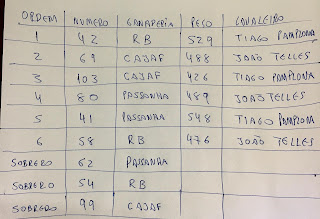 ORDEM NUMERO GANADERIA PESO CAVALEIRO
1 42 RB 529 TIAGO PAMPLONA
2 69 CAJAF 488 JOÃO TELLES
3 103 CAJAF 426 TIAGO PAMPLONA
4 80 PASSANHA 489 JOÃO TELLES
5 41 PASSANHA 548 TIAGO PAMPLONA
6 58 RB 476 JOÃO TELLES
SOBRERO 62 PASSANHA
SOBRERO 54 RB
SOBRERO 99 CAJAF